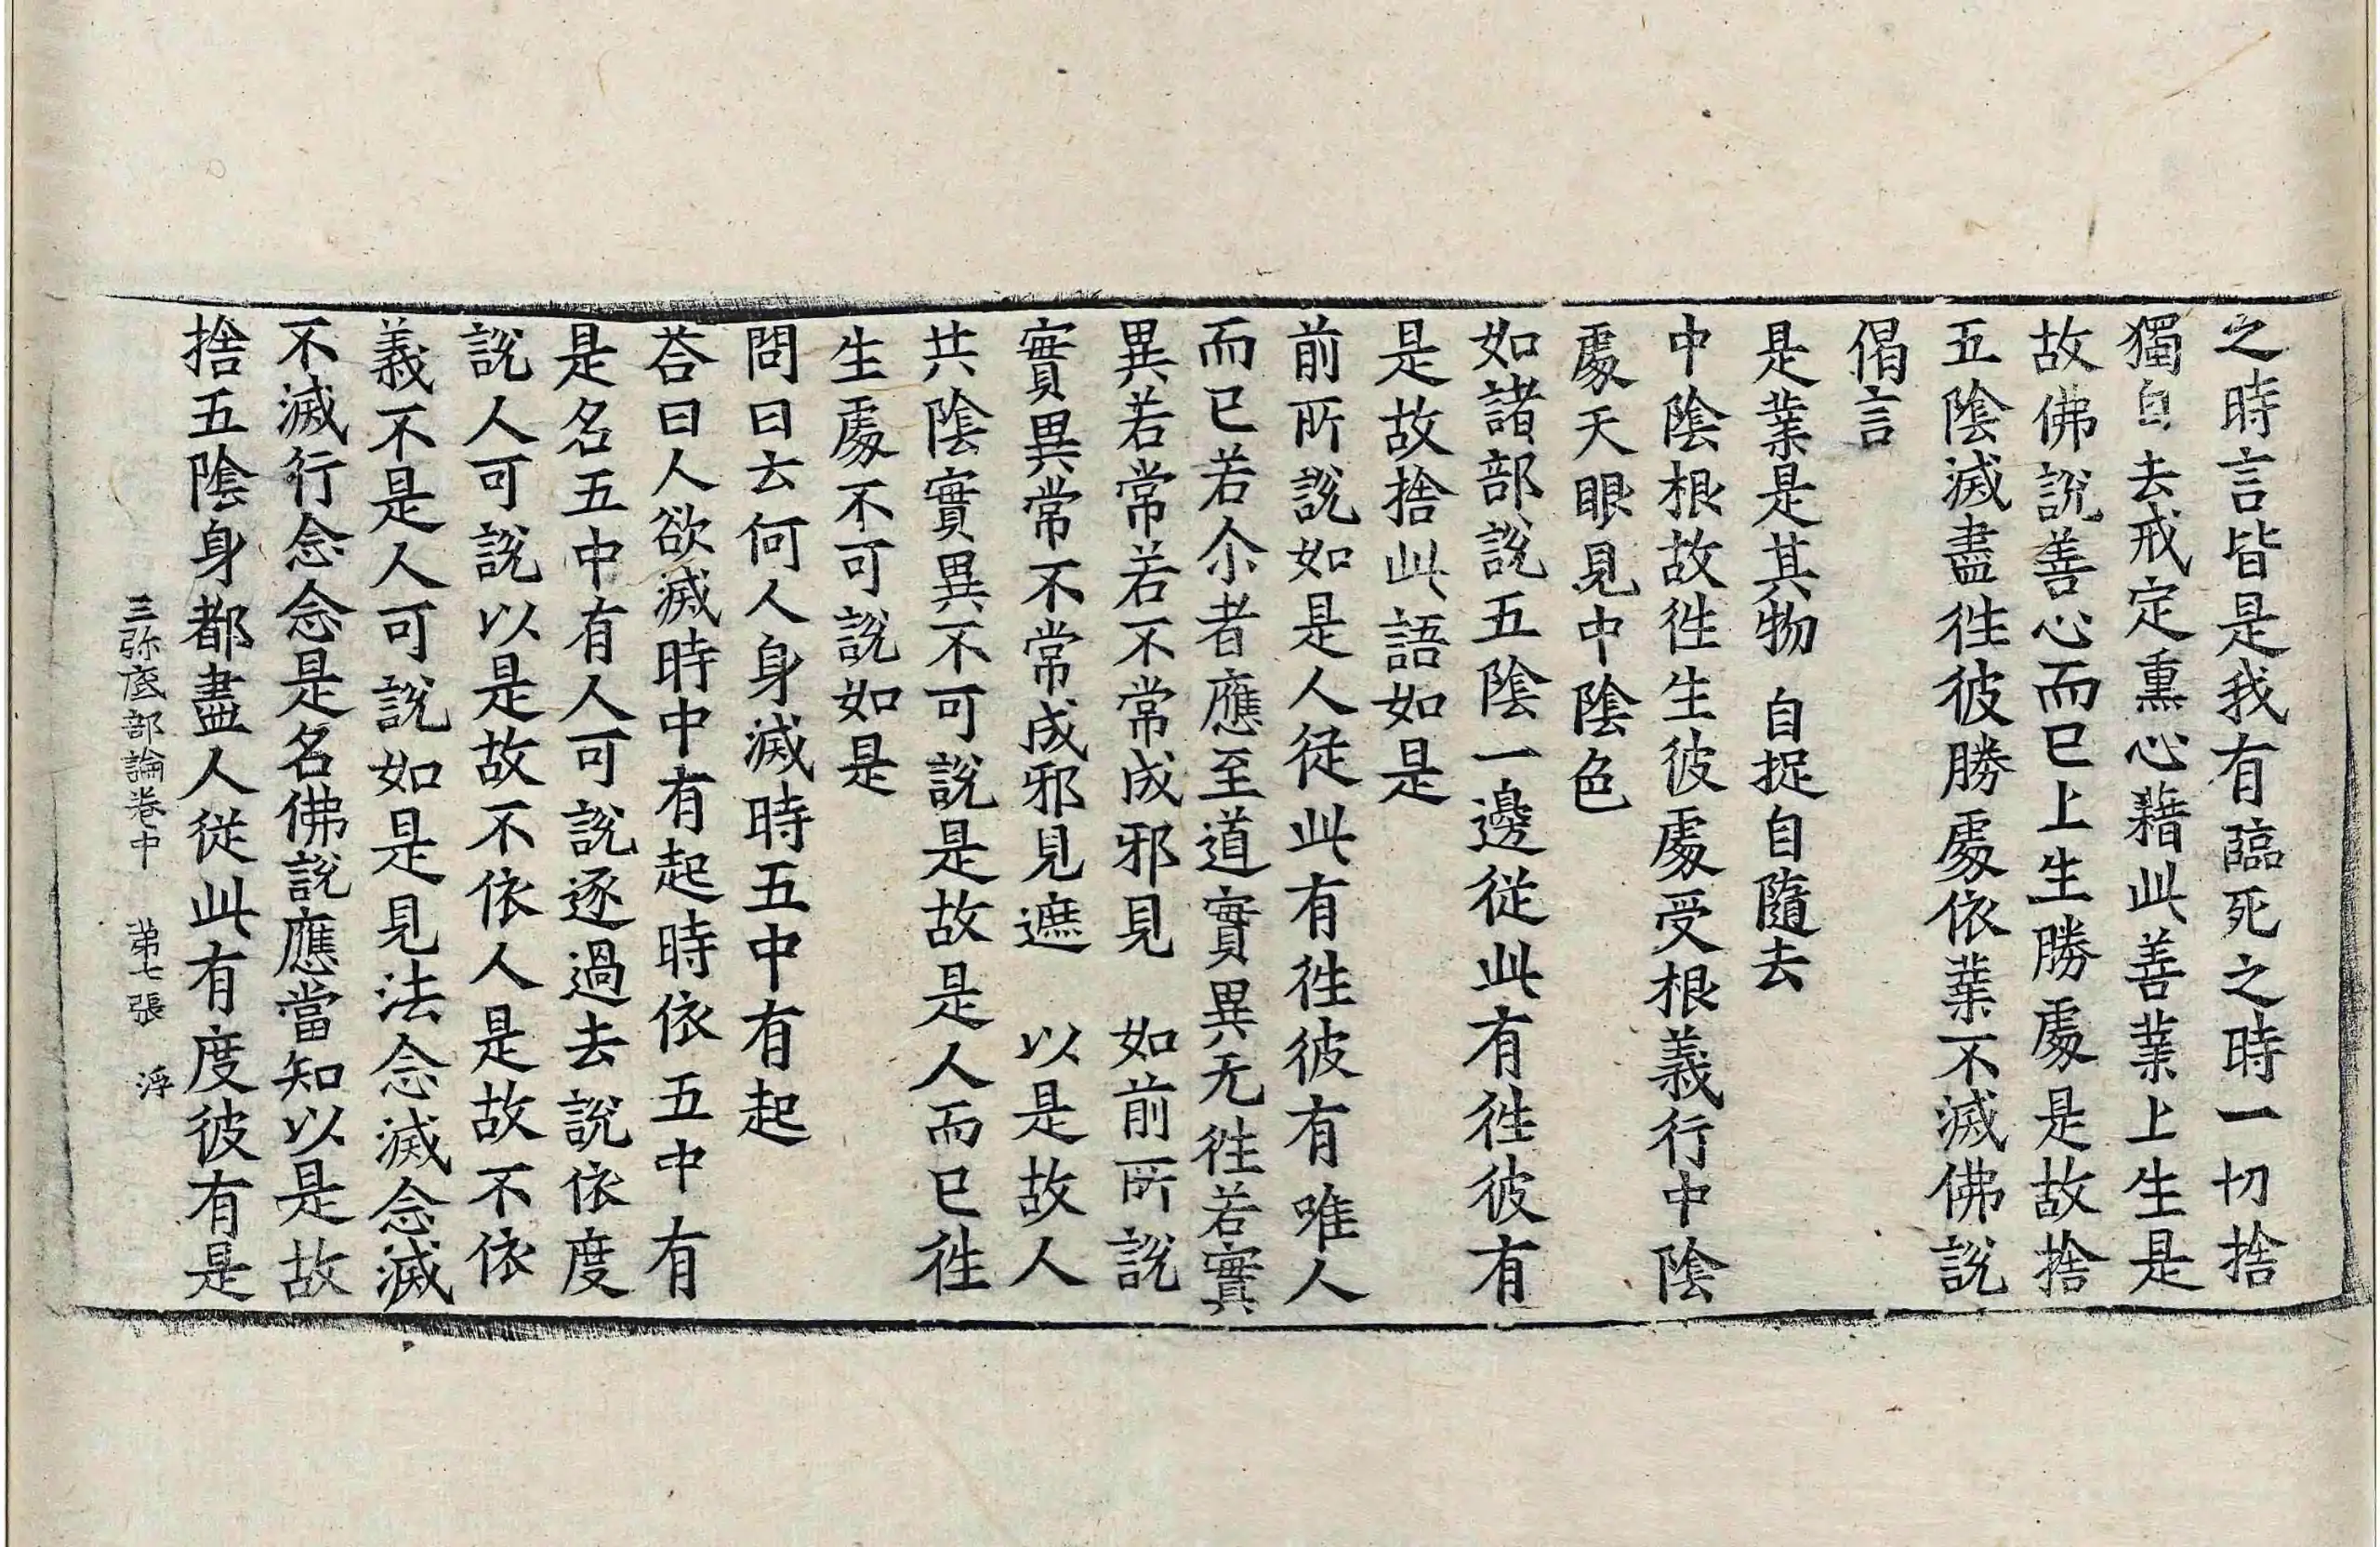 之時言皆是我有臨死之時一切捨
獨自去戒定熏心藉此善業上生是
故佛說善心而已上生勝處是故捨
五陰滅盡往彼勝處依業不滅佛說
偈言
是業是其物 自捉自隨去
中陰根故往生彼處受根義行中陰
處天眼見中陰色
如諸部說五陰一邊從此有往彼有
是故捨此語如是
前所說如是人從此有往彼有唯人
而已若尒者應至道實異无往若實
異若常若不常成邪見 如前所說
實異常不常成邪見遮 以是故人
共陰實異不可說是故是人而已往
生處不可說如是
問曰云何人身滅時五中有起
荅曰人欲滅時中有起時依五中有
是名五中有人可說逐過去說依度
說人可說以是故不依人是故不依
義不是人可說如是見法念滅念滅
不滅行念念是名佛說應當知以是故
捨五陰身都盡人從此有度彼有是
三弥底部論卷中 苐七張 浮